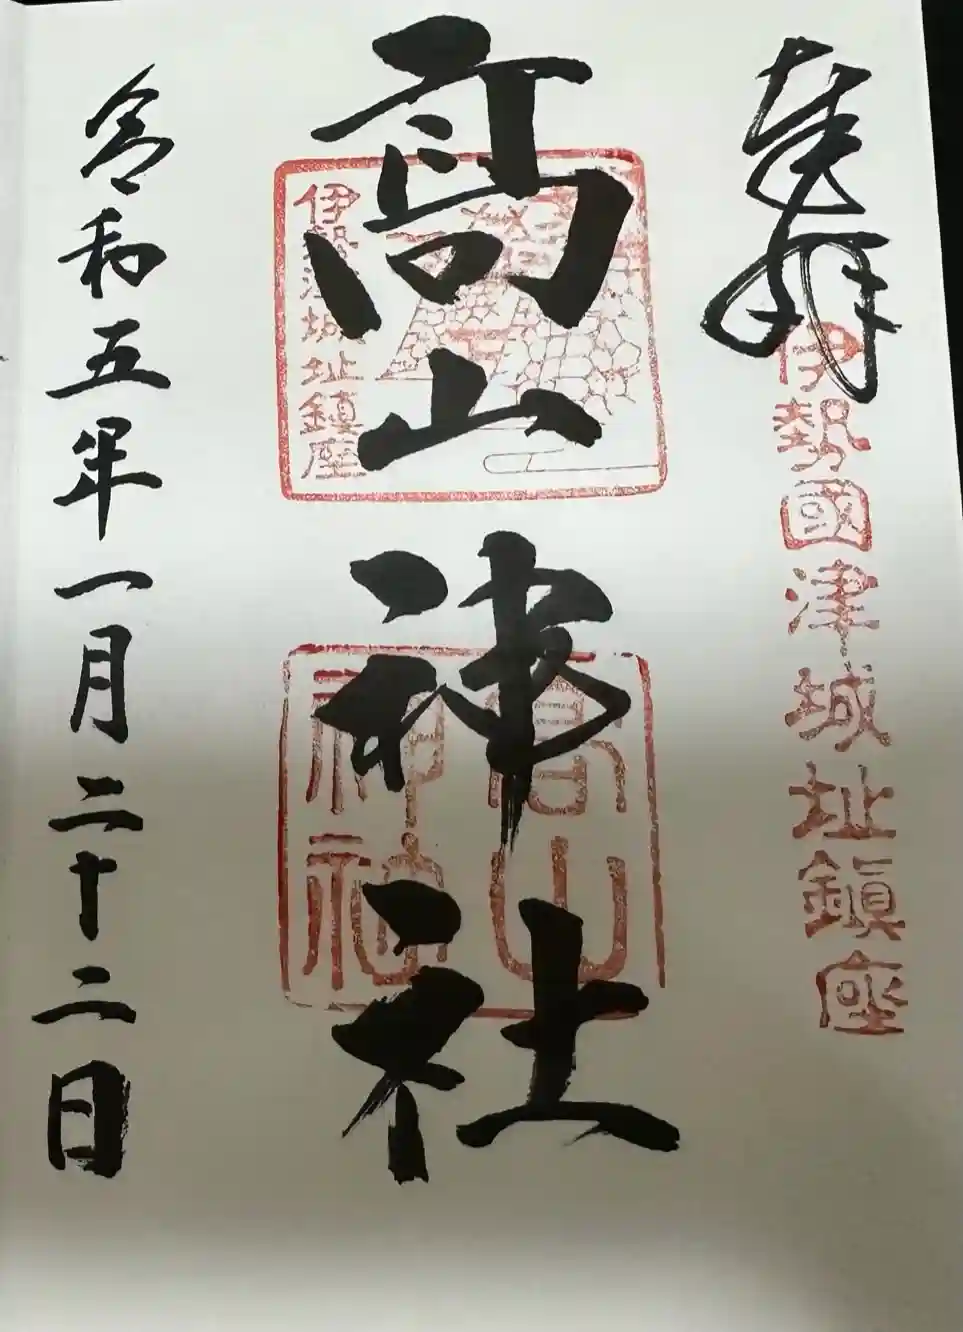 奉拝
伊勢國津城址鎮座
高山神社
伊勢津城址鎮座
高山
神社
令和五年一月二十二日